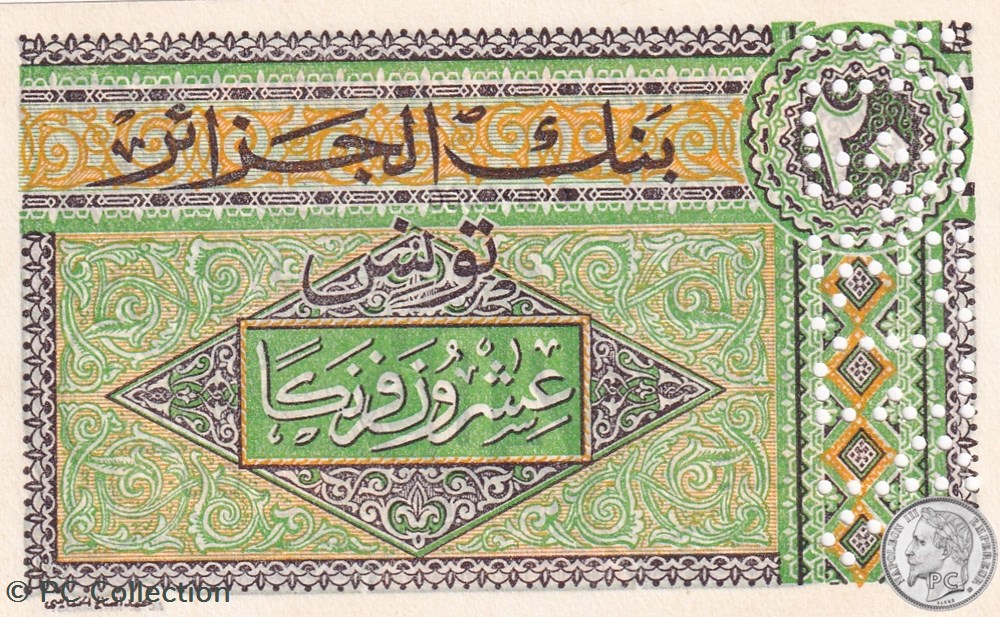 بنك الجزائر
٢٠
تونس
عشرون فرنكا
© PC Collection
NAPOLEON III EMPEREUR
PC